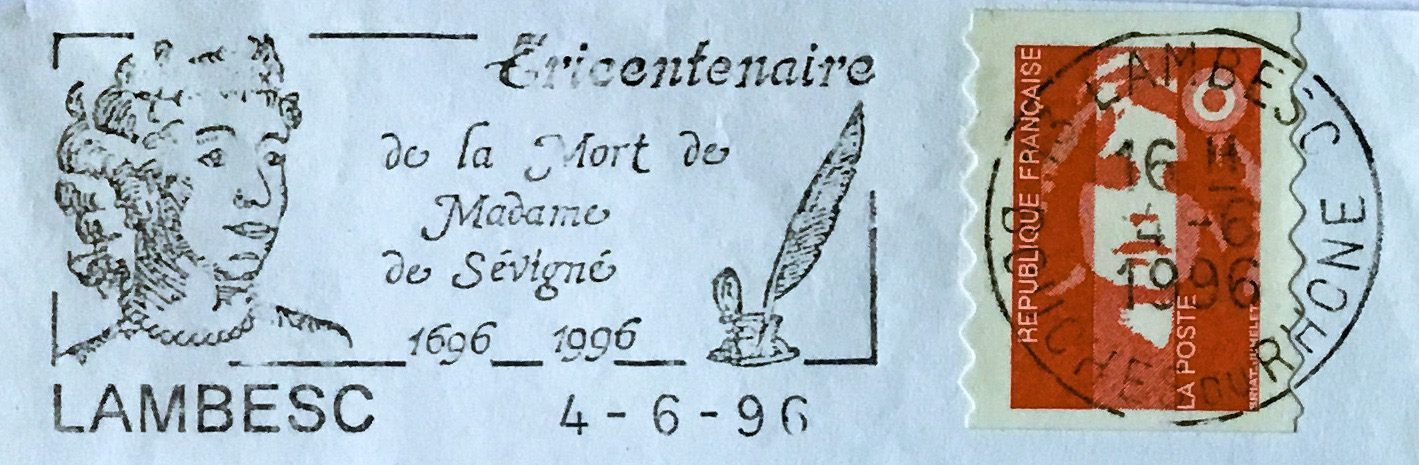 Tricentenaire
de la Mort de
Madame
de Sévigné
1696 1996
LAMBESC
4-6-96
REPUBLIQUE FRANÇAISE
LA POSTE
BRIAT-JUMELET
13 LAMBESC
16 H
4-6
1996
BOUCHES DU RHONE